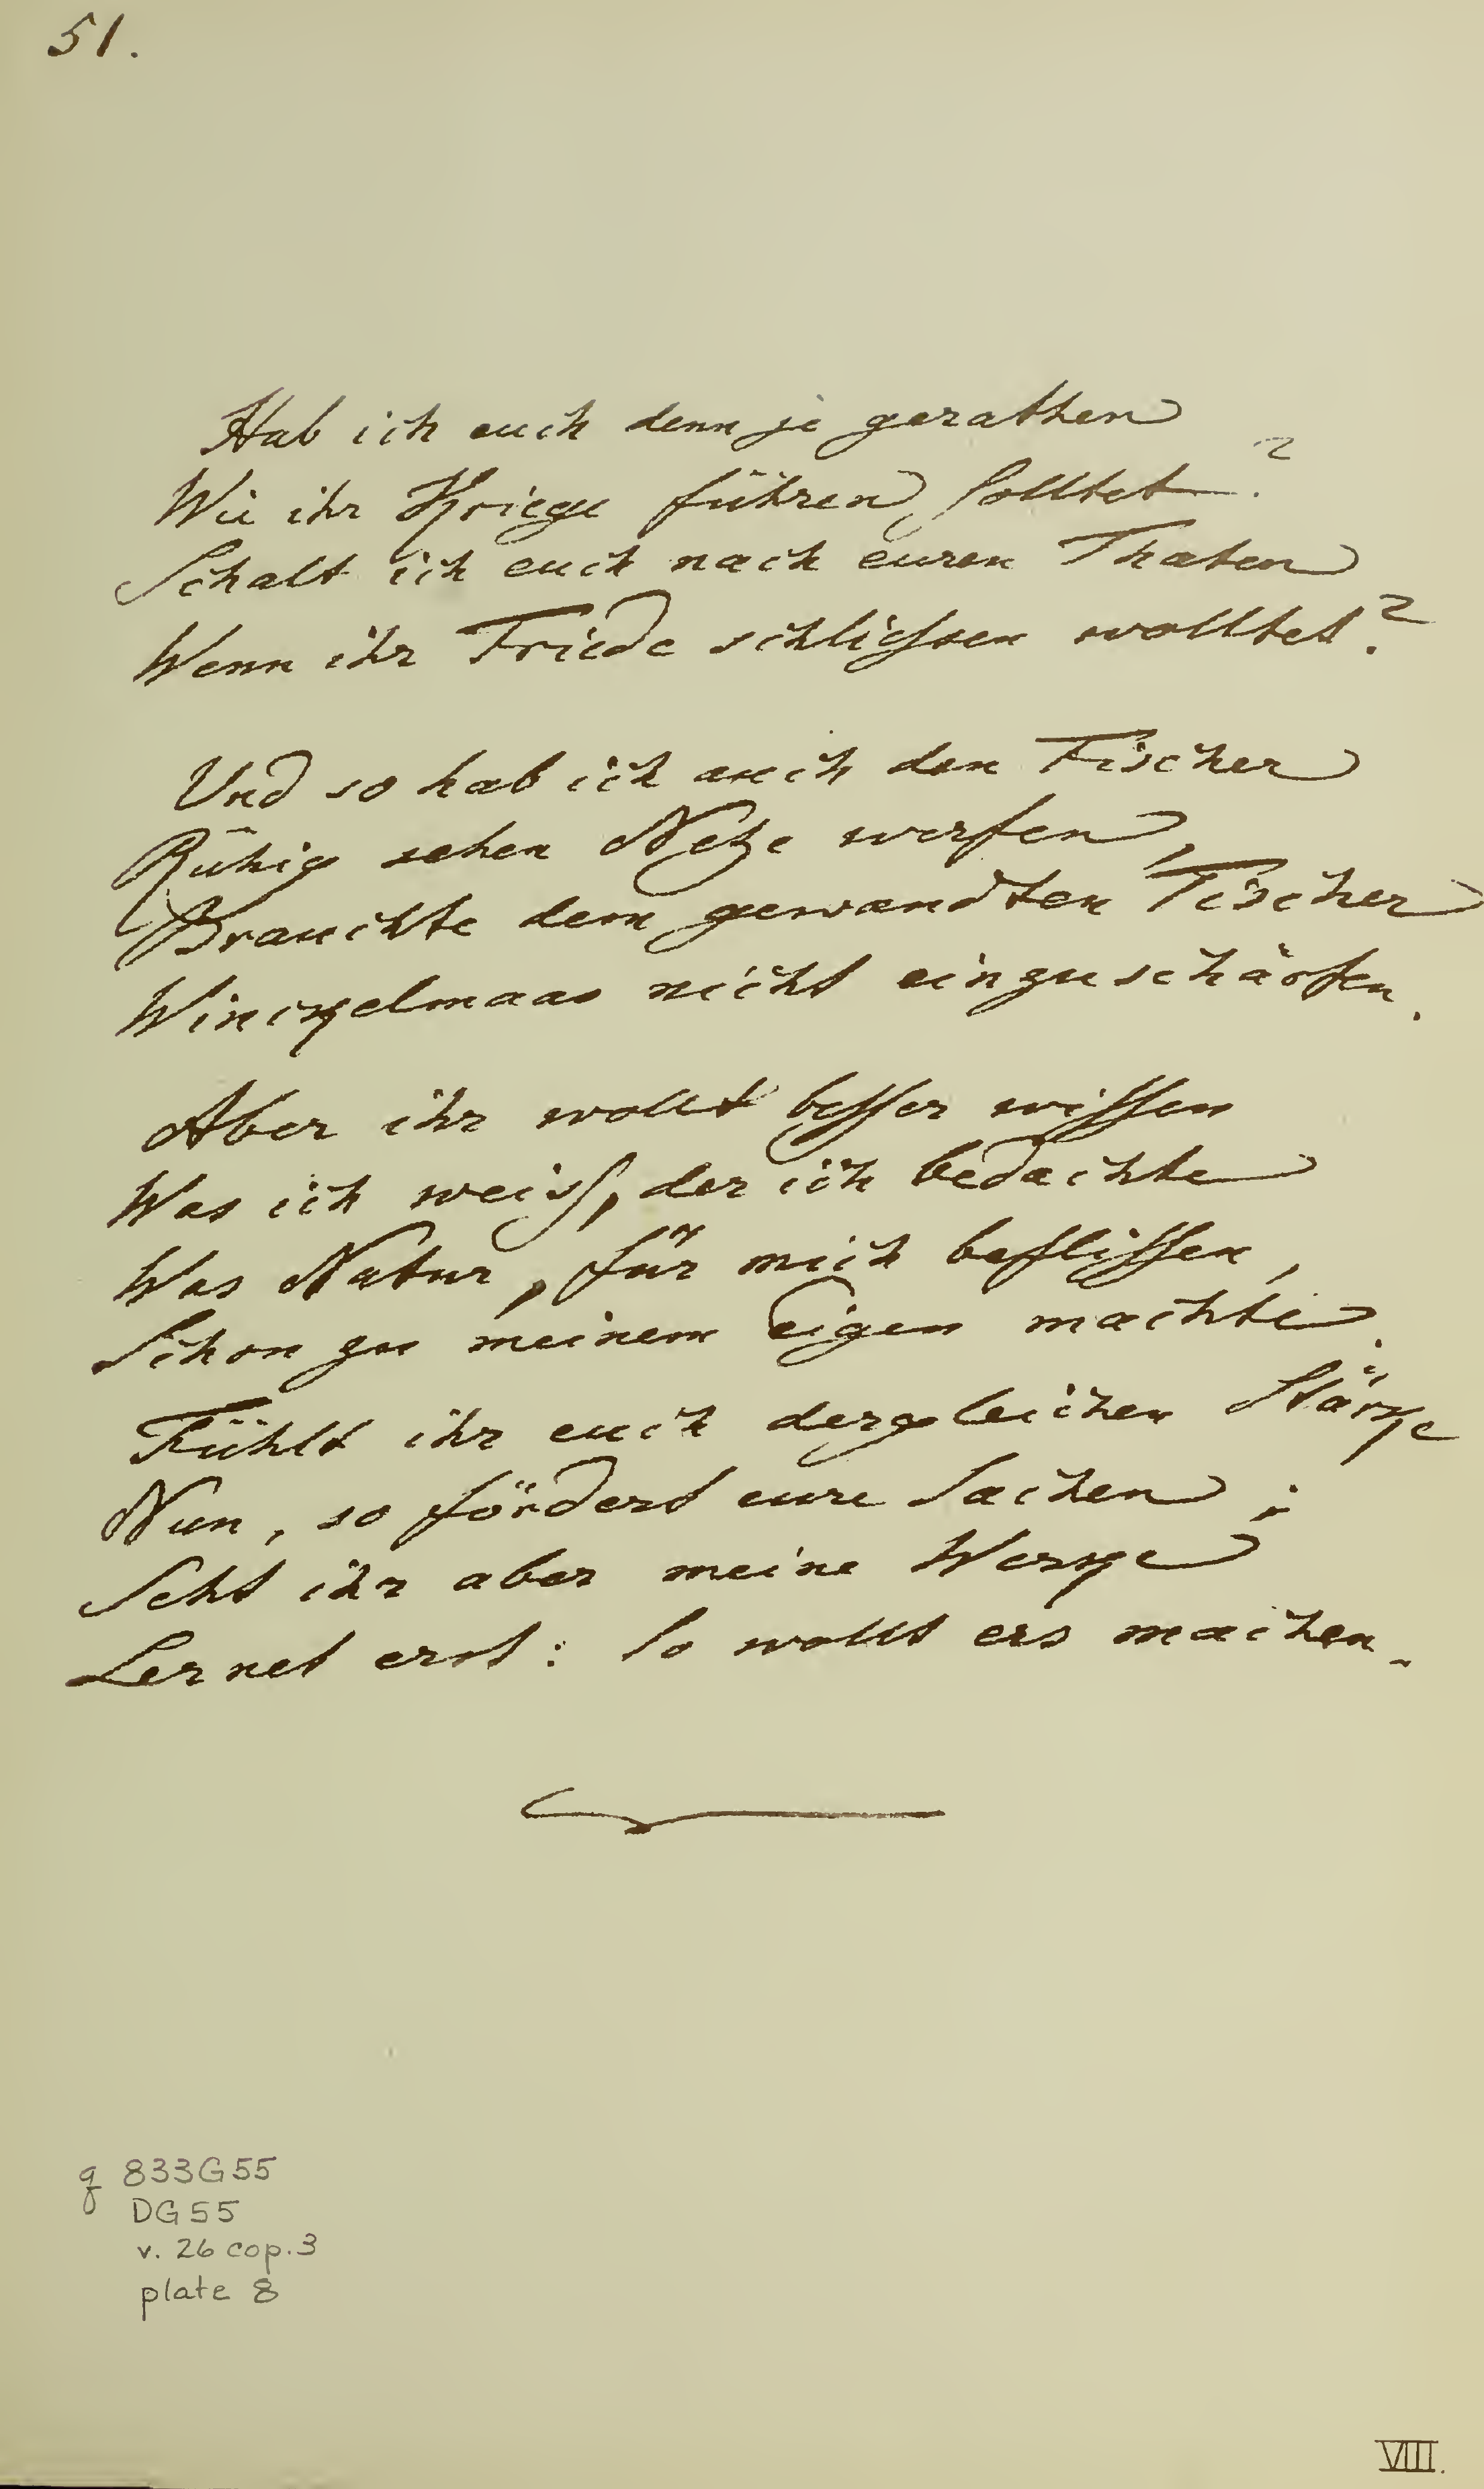 51.
Hab ich euch denn je gerathen
Wie ihr Kriege führen solltet?
Schalt ich euch nach euren Thaten
Wenn ihr Friede schliessen wolltet?
Und so hab ich auch den Fischer
Rühig sehen Netze werfen,
Brauchte dem gewandten Tischer
Winckelmaas nicht einzuschärfen.
Aber ihr wollt besser wissen
Was ich weis, der ich bedachte
Was Natur, für mich beflissen,
Schon zu meinem Eigen machte.
Fühlt ihr euch dergleichen Stärcke
Nun, so fördert eure Sachen;
Seht ihr aber meine Wercke
Lernet erst: So wollt ers machen.
q 833G55
DG55
v. 26 cop. 3
plate 8
VIII.